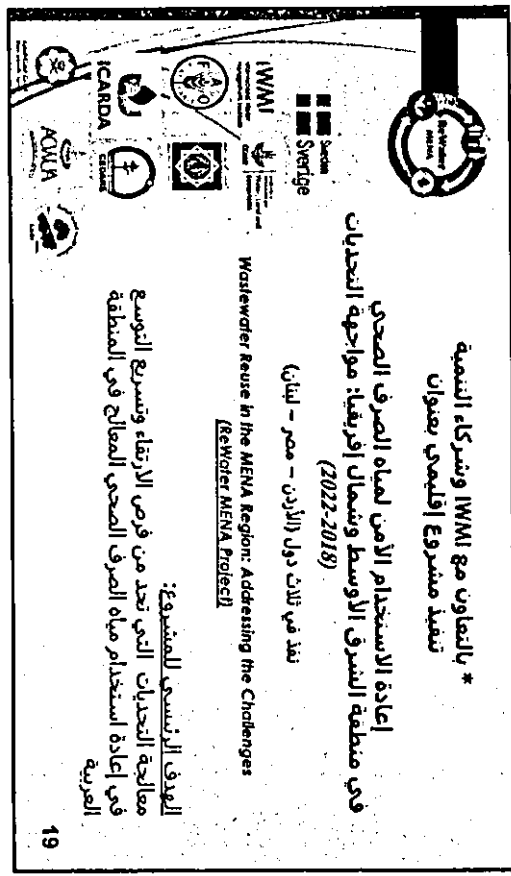 * بالتعاون مع IWMI وشركاء التنمية
تنفيذ مشروع إقليمي بعنوان
إعادة الاستخدام الآمن لمياه الصرف الصحي
في منطقة الشرق الأوسط وشمال إفريقيا: مواجهة التحديات
(2018-2022)
نفذ في ثلاث دول (الأردن - مصر - لبنان)
Wastewater Reuse in the MENA Region: Addressing the Challenges
(ReWater MENA Project)
الهدف الرئيسي للمشروع:
معالجة التحديات التي تحد من فرص الارتقاء وتسريع التوسع
في إعادة استخدام مياه الصرف الصحي المعالج في المنطقة
العربية
ReWater
MENA
Sweden
Sverige
IWMI
FAO
ICARDA
CEDARE
ACWUA
19